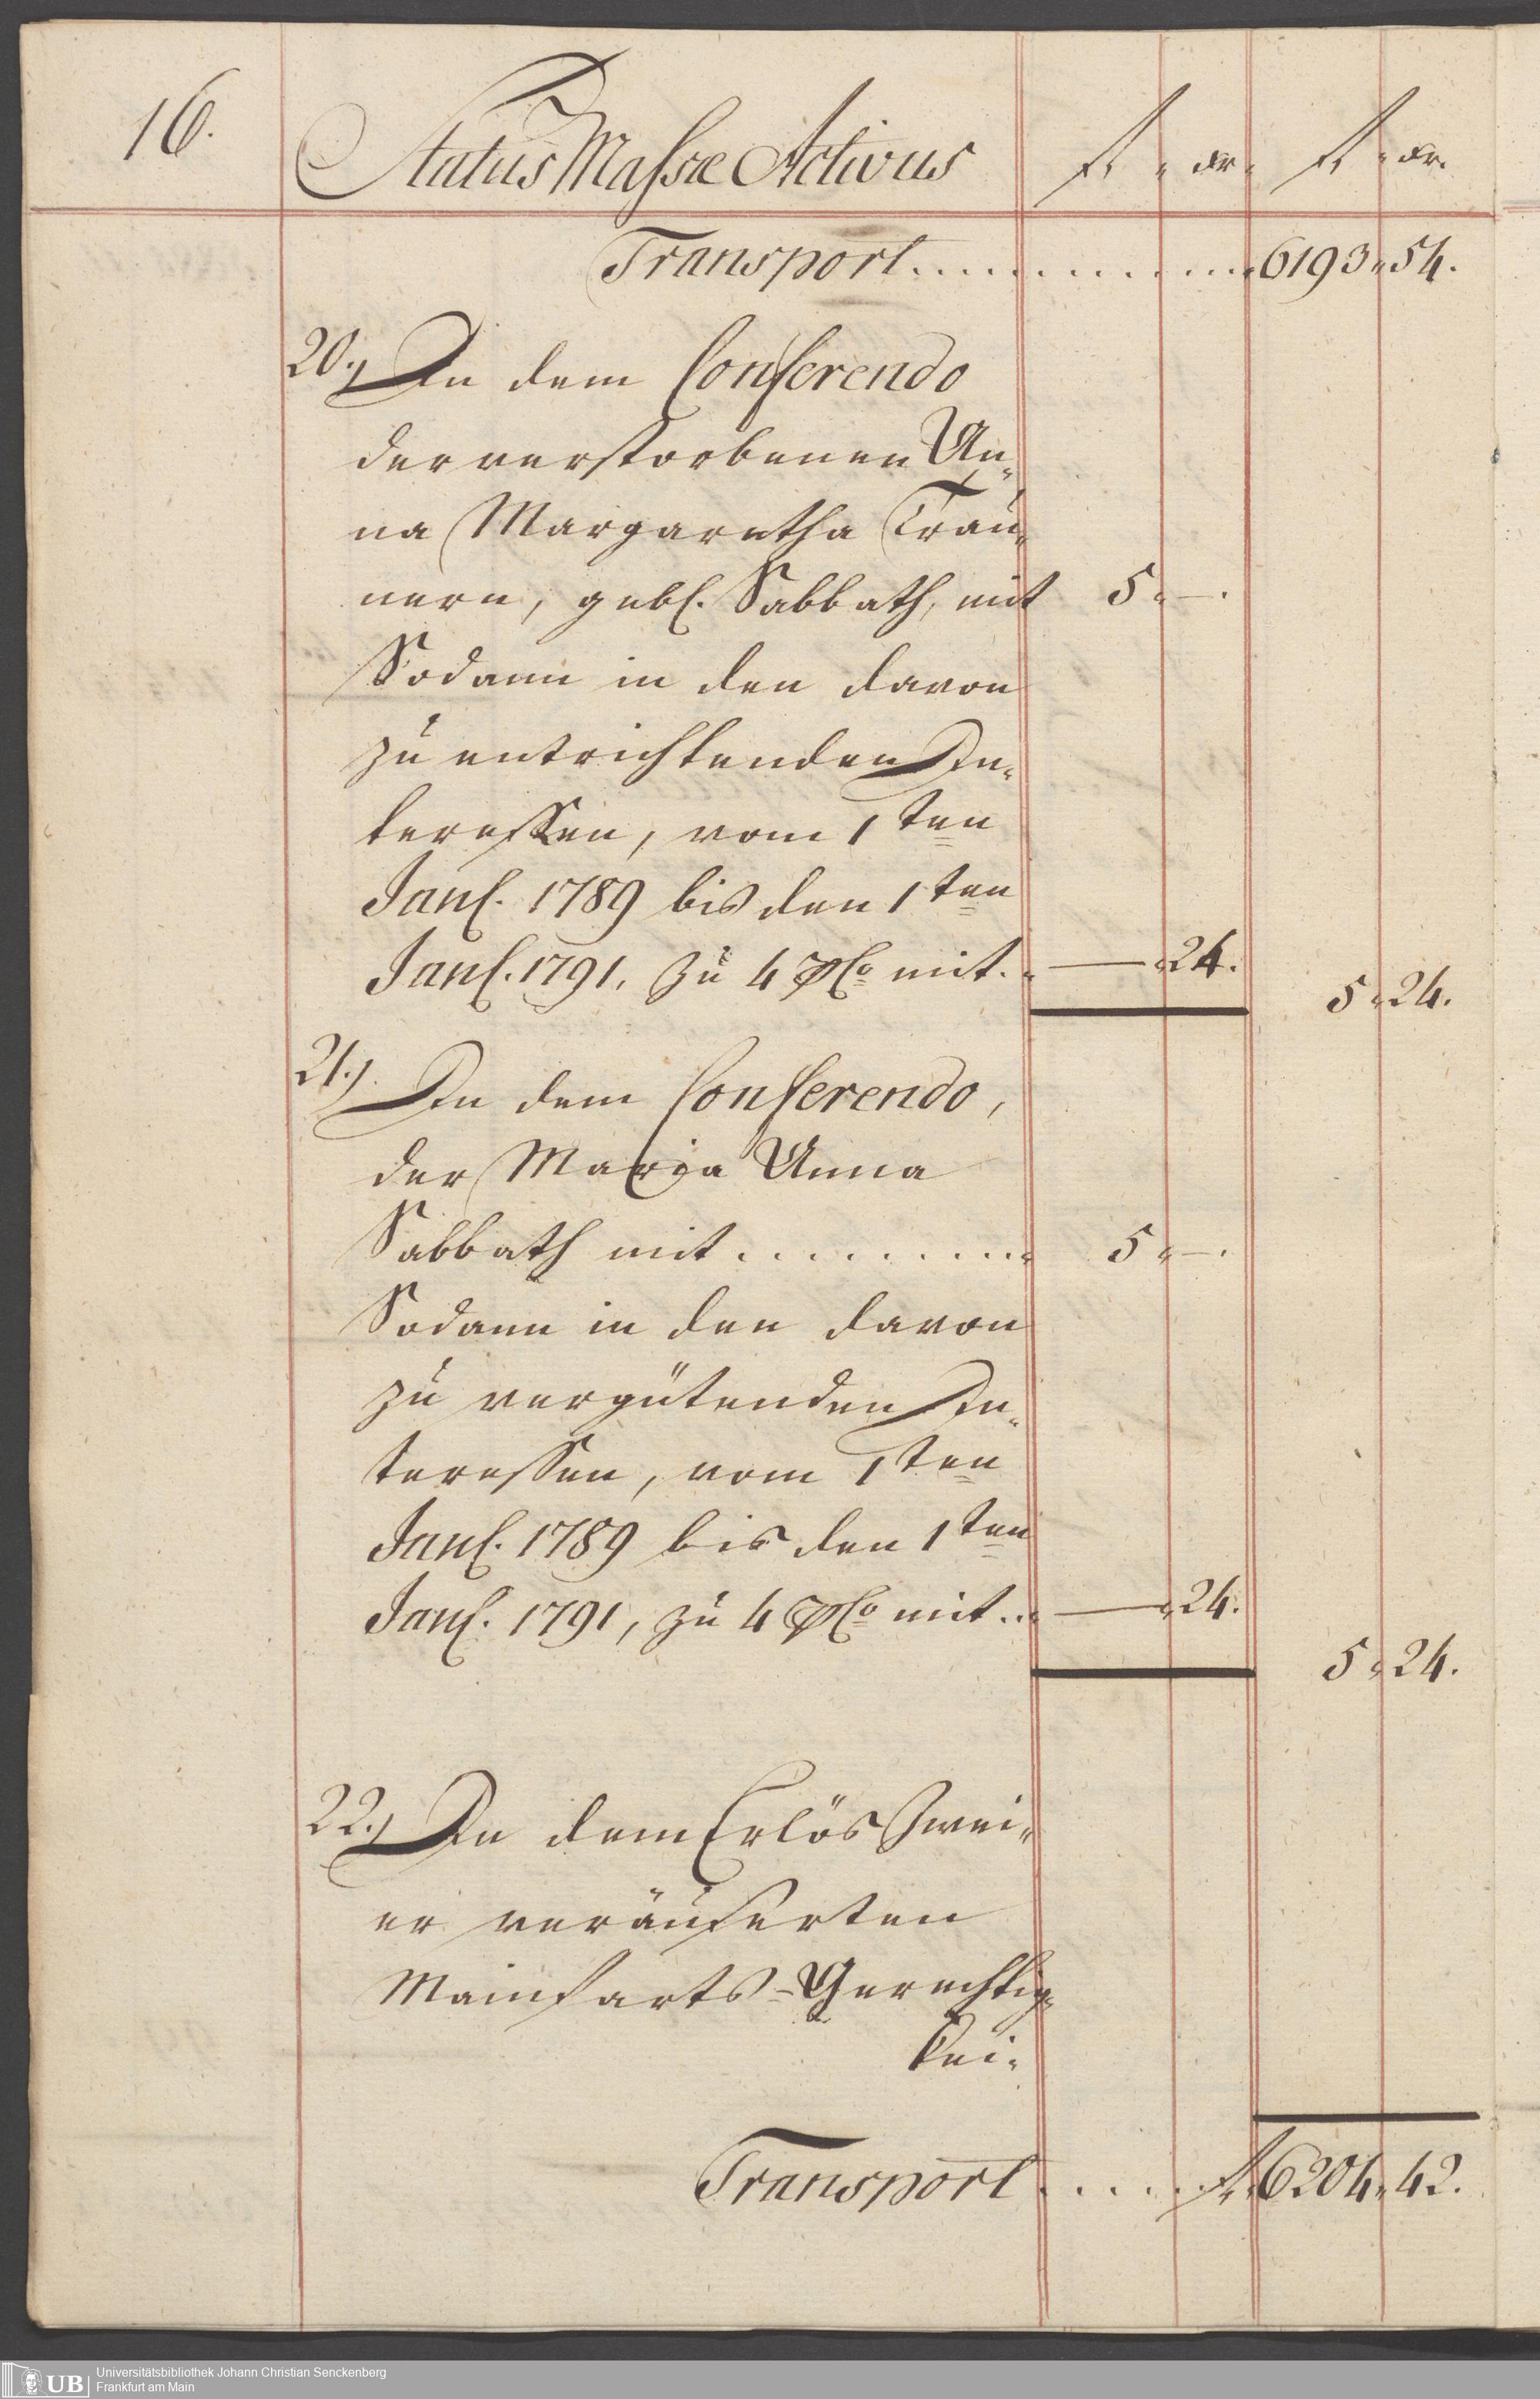 16.
Status Massæ Activus fl. „ xr. fl. „ xr.
Transport . . . . . . . . . . 6193 „ 54.
20.) In dem Conferendo
der verstorbenen An„
na Margaretha Trau„
nern, gebl. Sabbath, mit 5 „ —.
Sodann in den davon
zu entrichtenden In„
teressen, vom 1ten
Janl. 1789 bis den 1ten
Janl. 1791. zu 4 pCo mit. „ — „ 24.
5 „ 24.
21.) In dem Conferendo,
der Maria Anna
Sabbath mit . . . . . . . . . „ 5 „ —.
Sodann in den davon
zu vergütenden In„
teressen, vom 1ten
Janl. 1789 bis den 1ten
Janl. 1791, zu 4 pCo mit .. „ — „ 24.
5 „ 24.
22.) In dem Erlös Zwei„
er veräuserten
Mainfarts-Gerechtig„
kei„
Transport . . . . . . fl. 6204 „ 42.
UB Universitätsbibliothek Johann Christian Senckenberg
Frankfurt am Main